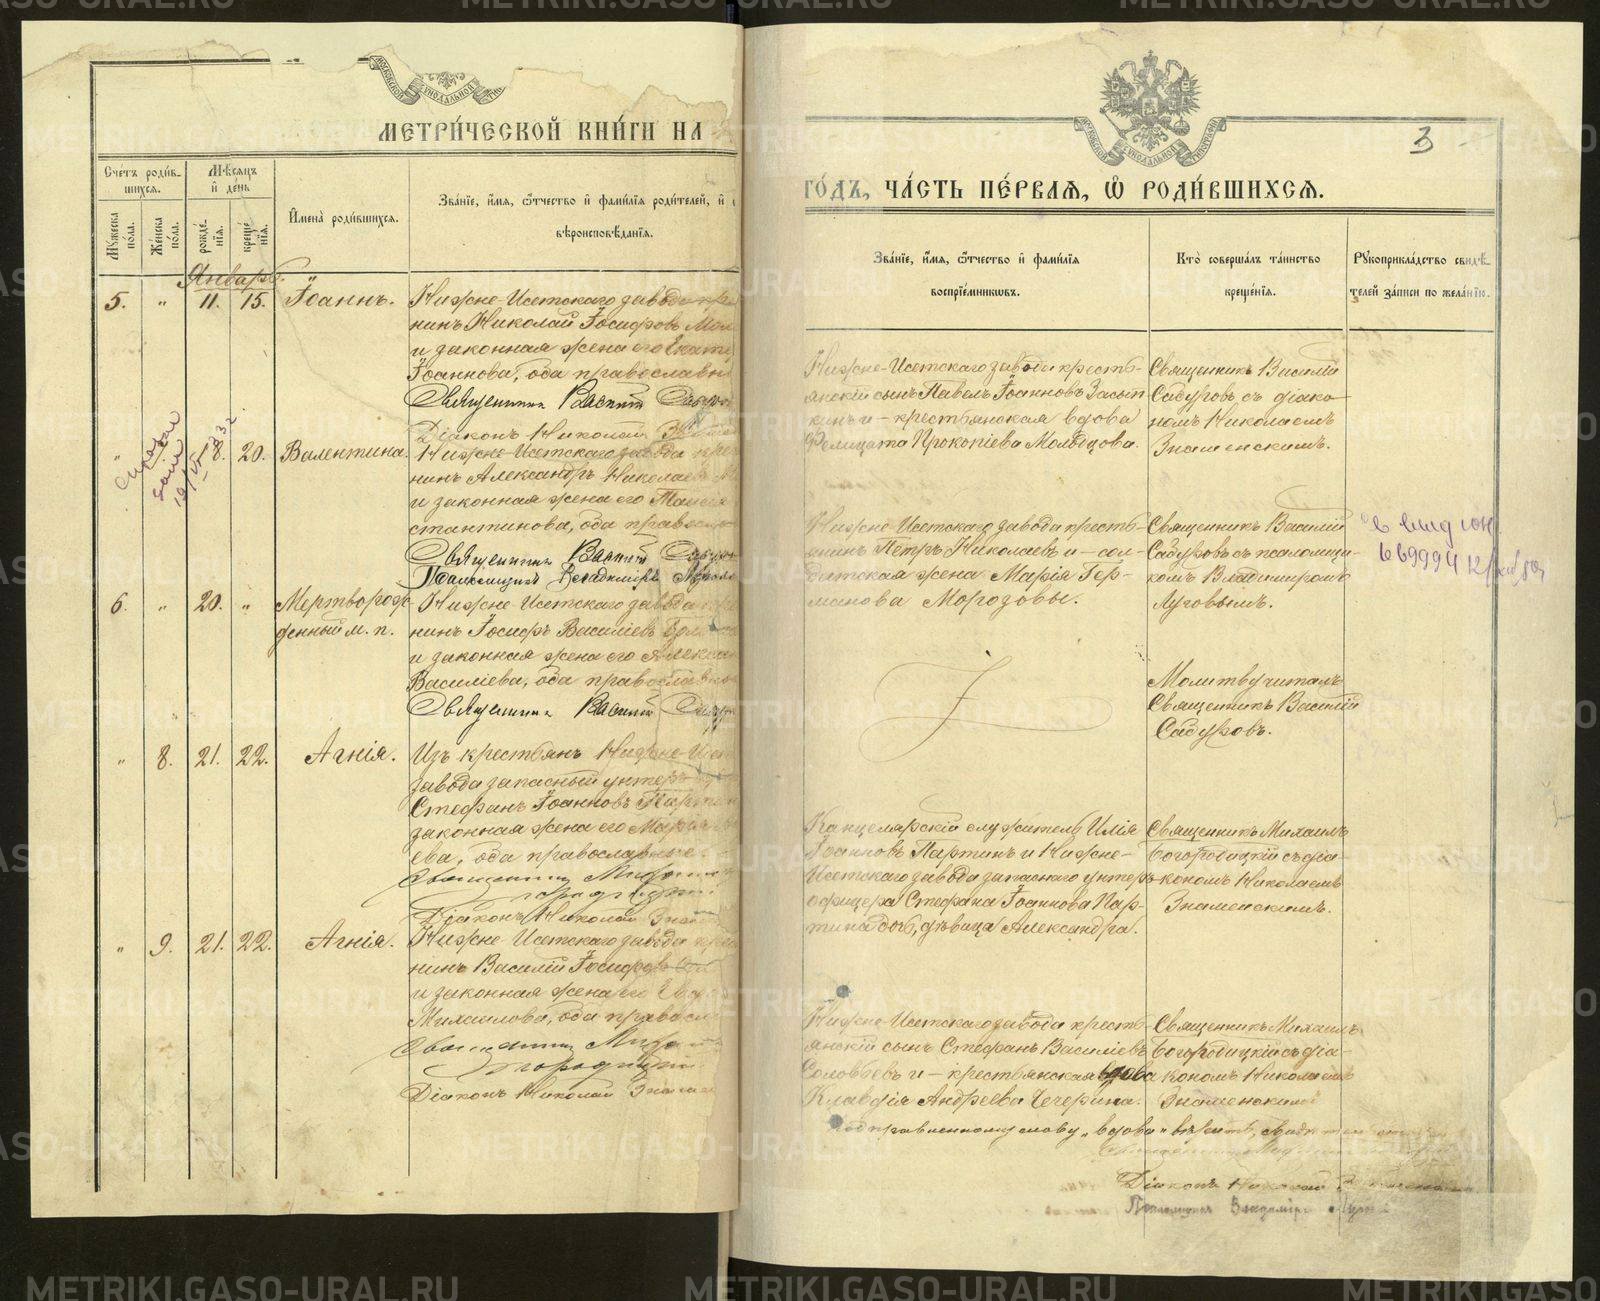 МЕТРИ́ЧЕСКОЙ КНИ́ГИ НА
Сче́тъ роди́в-
шихсѧ.
Мѣ́сѧцъ
и де́нь
Мꙋ́жеска по́ла.
Же́нска по́ла.
рожде́-
нїѧ.
креще́
нїѧ.
Имена̀ роди́вшихсѧ.
Зва́нїе, и́мѧ, ѻ҆́тчество и фами́лїѧ роди́телей, и
вѣроисповѣ́данїѧ.
Январь.
5. " 11. 15. Іоаннъ.
Нижне-Исетскаго завода кре
нинъ Николай Іосифовъ Мол
и законная жена его Екате
Іоаннова, оба православн
Священникъ Василій Садур
Діаконъ Николай
" 18. 20. Валентина.
19/VI 32
Нижне-Исетскаго завода кре
нинъ Александръ Николаевъ
и законная жена его Таисія
стантинова, оба правосл
Священникъ Василій Саду
Псаломщикъ Владиміръ Лугов
6. " 20. " Мертворож-
денный м. п.
Нижне-Исетскаго завода кре
нинъ Іосифъ Василіевъ
и законная жена его Алекса
Василіева, оба православн
Священникъ Василій Саду
" 8. 21. 22. Агнія.
Изъ крестьянъ Нижне-Исе
завода запасный унтеръ
Стефанъ Іоанновъ Партин
законная жена его Марія
ева, оба православные.
Священникъ Миха
городицкій
Діаконъ Николай Знаме
" 9. 21. 22. Агнія.
Нижне-Исетскаго завода кре
нинъ Василій Іосифовъ
и законная жена его Евдо
Михаилова, оба правосл
Священникъ Миха
Богородицкій
Діаконъ Николай Знамен
МОСКОВСКОЙ СѴНОДАЛЬНОЙ ТѴПОГРАФІИ
3
ГО́ДЪ, ЧА́СТЬ ПЕ́РВАѦ, Ѡ҆ РОДИ́ВШИХСѦ.
Зва́нїе, и́мѧ, ѻ҆́тчество и фами́лїѧ
воспрїе́мниковъ.
Кто̀ соверша́лъ та́инство
креще́нїѧ.
Рꙋкоприкла́дство свидѣ́-
телей за́писи по жела́нїю.
Нижне-Исетскаго завода кресть-
янскій сынъ Павелъ Іоанновъ Засып
кинъ и - крестьянская вдова
Фелицата Прокопіева Молодцова.
Священникъ Василій
Садуровъ съ діако-
номъ Николаемъ
Знаменскимъ.
Нижне-Исетскаго завода кресть-
янинъ Петръ Николаевъ и - сол-
датская жена Марія Гер-
манова Морозовы.
Священникъ Василій
Садуровъ съ псаломщи-
комъ Владиміромъ
Луговымъ.
Молитву читалъ
Священникъ Василій
Садуровъ.
Канцелярскій служитель Илія
Іоанновъ Партинъ и Нижне-
Исетскаго завода запаснаго унтеръ-
офицера Стефана Іоаннова Пар-
тина дочь, дѣвица Александра.
Священникъ Михаилъ
Богородицкій съ діа-
кономъ Николаемъ
Знаменскимъ.
Нижне-Исетскаго завода кресть-
янскій сынъ Стефанъ Василіевъ
Соловьевъ и - крестьянская вдова
Клавдія Андреева Чечерина.
Священникъ Михаилъ
Богородицкій съ діа-
кономъ Николаемъ
Знаменскимъ
Подправленному слову "вдова" вѣрить,
Діаконъ Николай Знаменскій
Псаломщикъ Владиміръ Луговой
METRIKI.GASO-URAL.RU